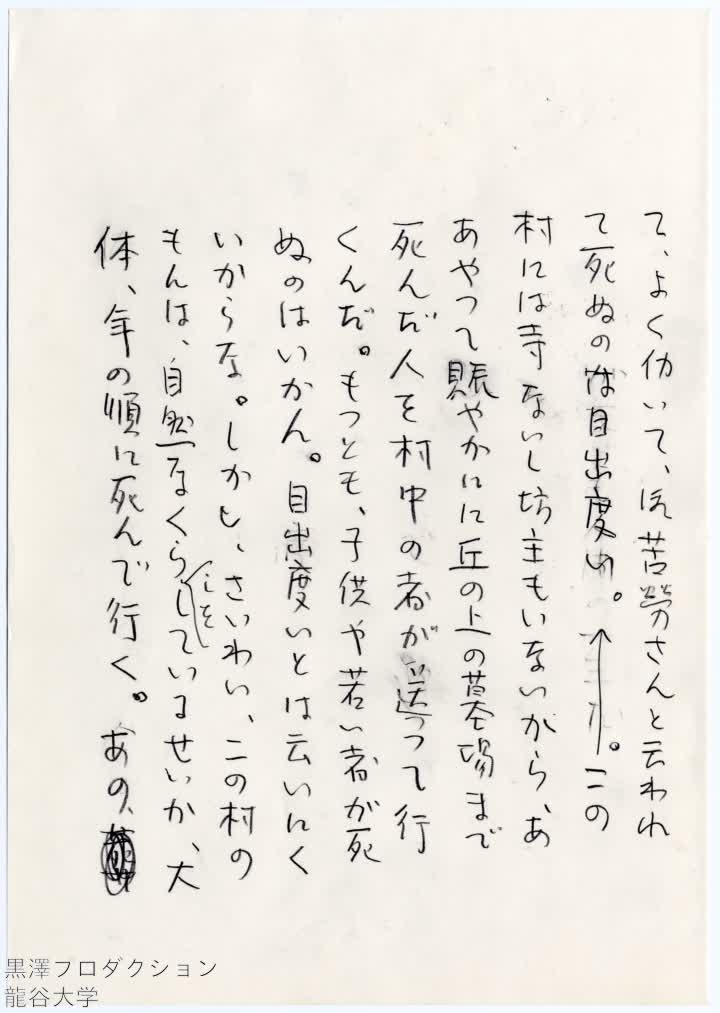 て、よく仂いて、ご苦労さんと云われ
て死ぬのは目出度い。この
村には寺ないし坊主もいないから、あ
あやつて賑やかに丘の上の墓場まで
死んだ人を村中の者が送つて行
くんだ。もつとも、子供や若い者が死
ぬのはいかん。目出度いとは云いにく
いからな。しかし、さいわい、この村の
もんは、自然なくらしをしているせいか、大
体、年の順に死んで行く。あの、
黒澤プロダクション
龍谷大学